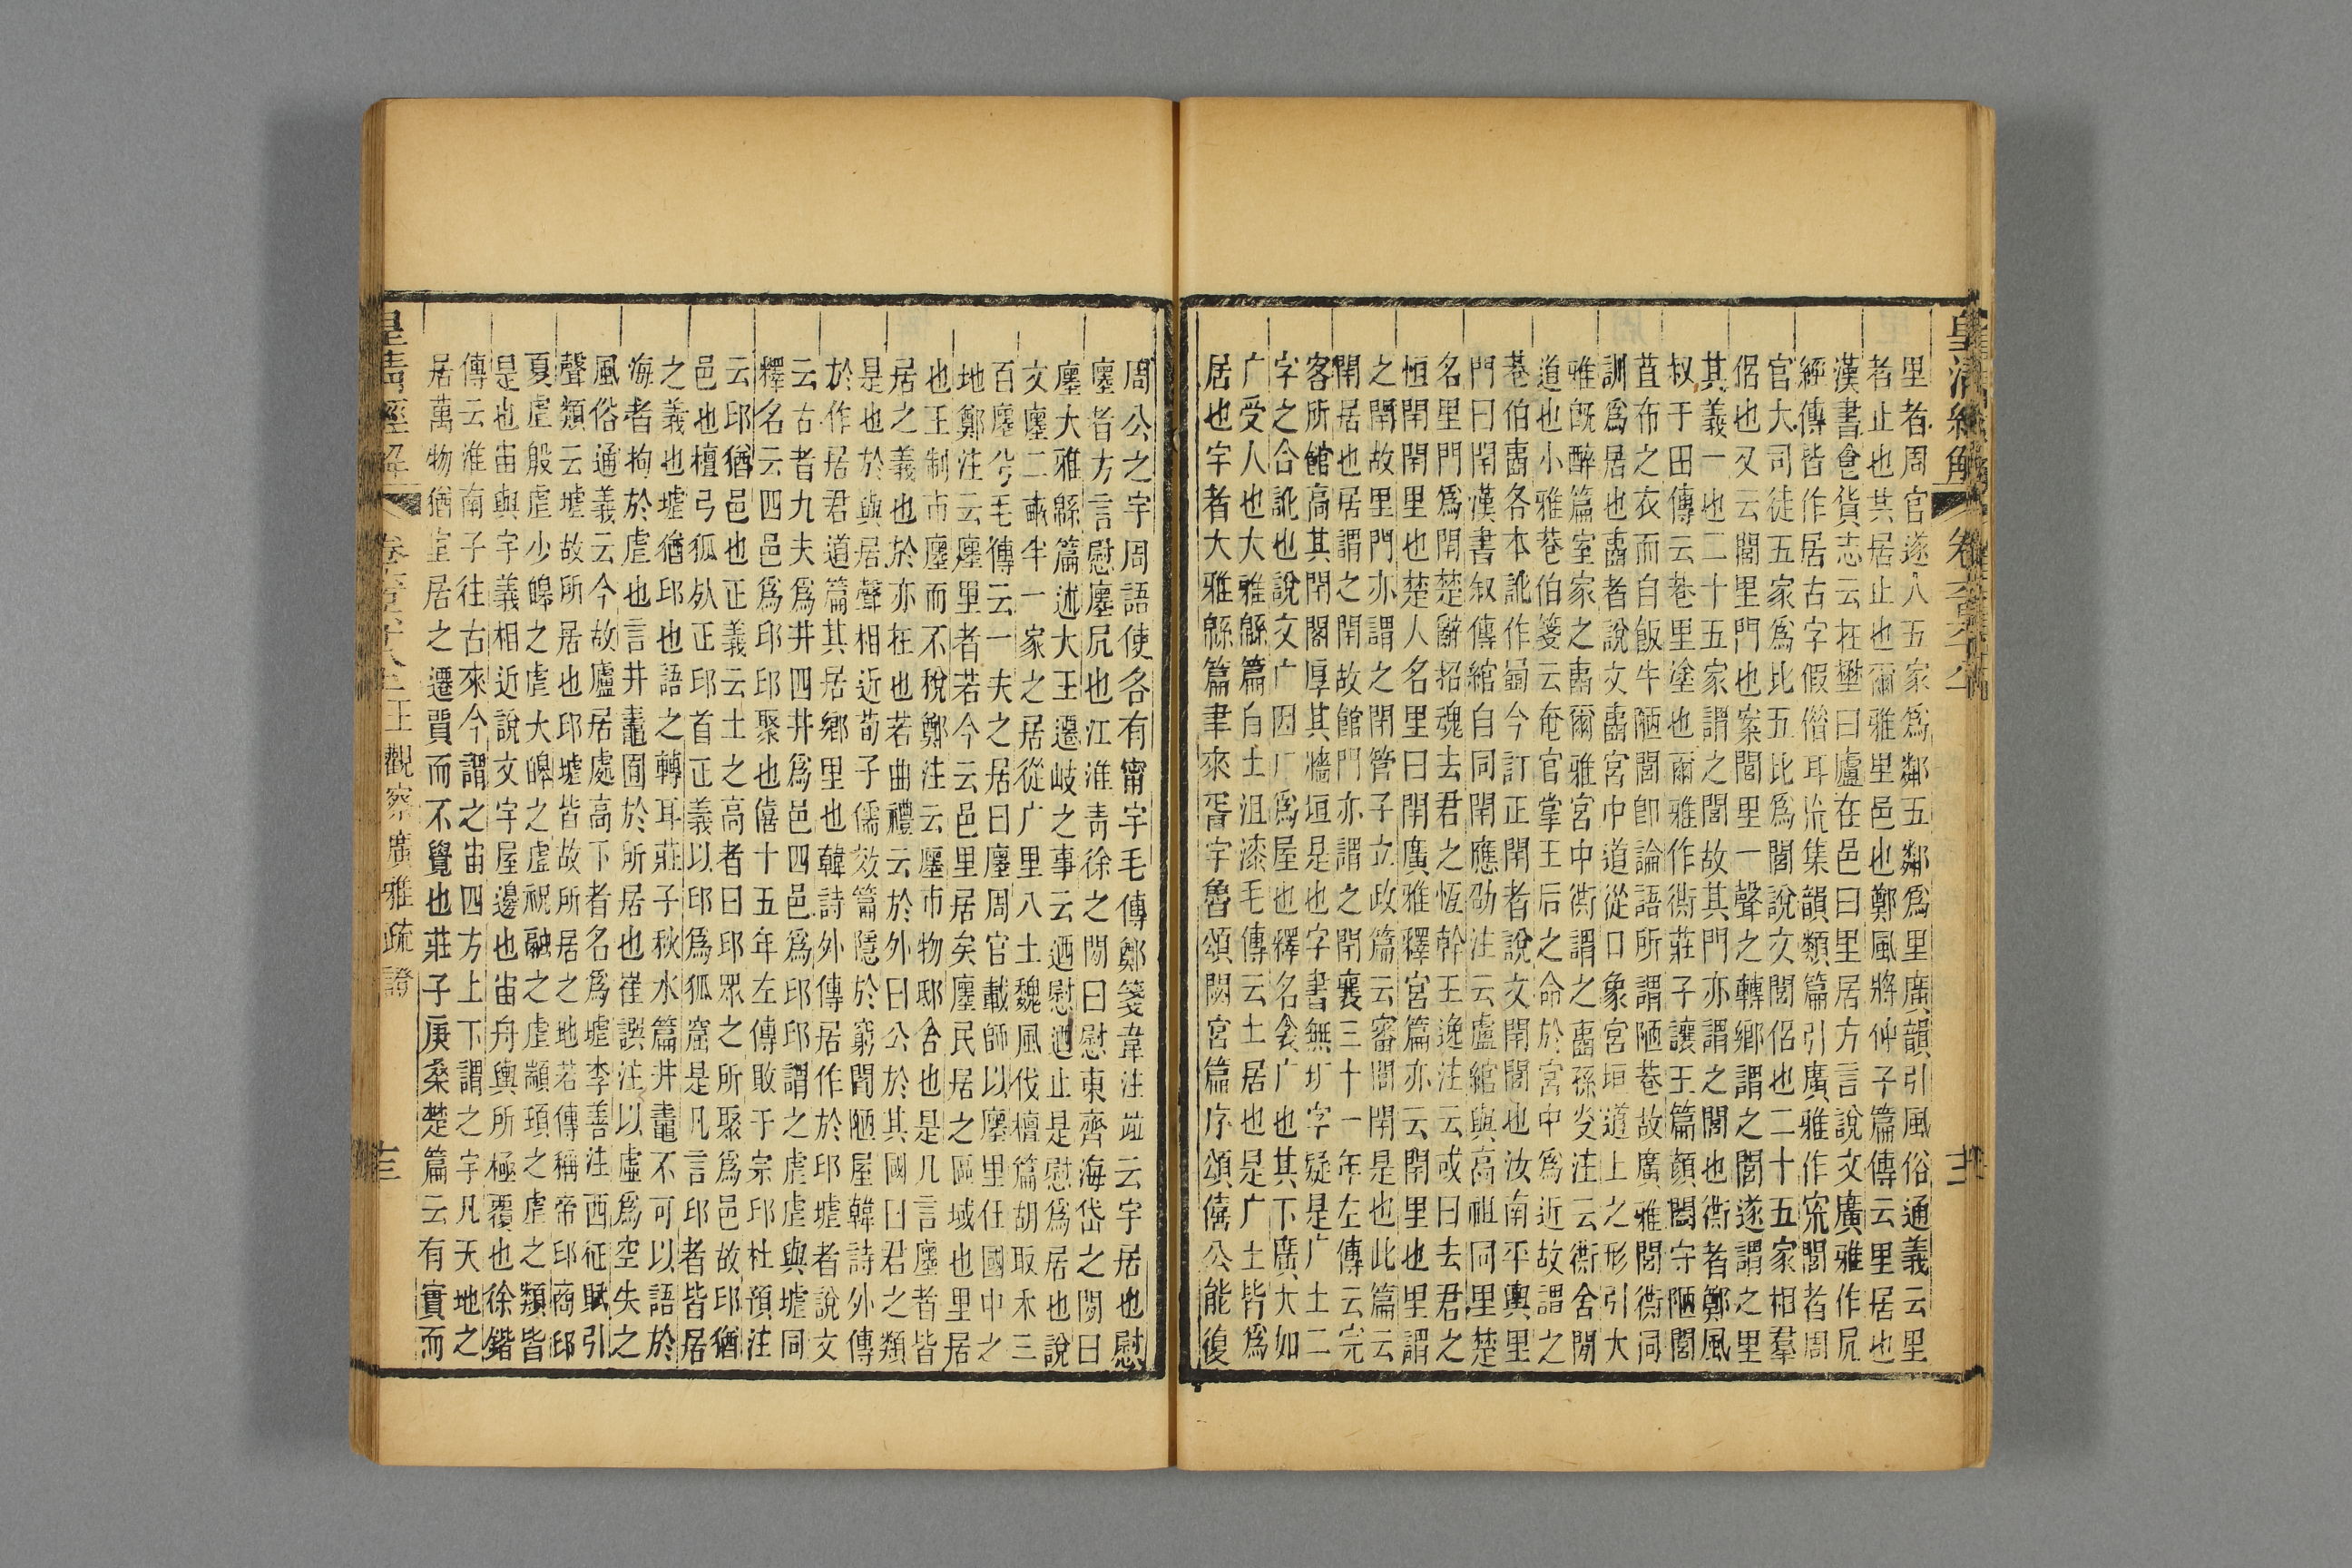 皇清經解
里者周官遂人五家爲鄰五鄰爲里廣韻引風俗通義云里
者止也其居止也爾雅里邑也鄭風將仲子篇傳云里居也
漢書食貨志云在壄曰廬在邑曰里居方言說文廣雅作凥
經傳皆作居古字假偺耳㡃集韻類篇引廣雅作㝩閻者周
官大司徒五家爲比五比爲閭說文閭侶也二十五家相羣
侶也又云閭里門也案閭里一聲之轉鄉謂之閭遂謂之里
其義一也二十五家謂之閭故其門亦謂之閭也衖者鄭風
叔于田傳云巷里塗也爾雅作衖莊子讓王篇顏闔守陋閭
苴布之衣而自飯牛陋閭卽論語所謂陋巷故廣雅閭衖同
訓爲居也𡇈者說文𡇈宮中道從口象宮垣道上之形引大
雅旣醉篇室家之𡇈爾雅宮中衖謂之𡇈孫炎注云衖舍閒
道也小雅巷伯箋云奄官掌王后之命於宮中爲近故謂之
巷伯𡇈各本訛作𡇈今訂正閈者說文閈閭也汝南平輿里
門曰閈漢書叙傳綰自同閈應劭注云盧綰與高祖同里楚
名里門爲閈楚辭招魂去君之恆幹王逸注云或曰去君之
恒閈閈里也楚人名里曰閈廣雅釋宮篇亦云閈里也里謂
之閈故里門亦謂之閈管子立政篇云審閭閈是也此篇云
閈居也居謂之閈故館門亦謂之閈襄三十一年左傳云完
客所館高其閈閎厚其牆垣是也字書無圹字疑是广土二
字之合訛也說文广因厂爲屋也釋名衾广也其下廣大如
广受人也大雅緜篇自土沮漆毛傳云土居也是广土皆爲
居也宇者大雅緜篇聿來胥宇魯頌閟宮篇序頌僖公能復
周公之宇周語使各有甯宇毛傳鄭箋韋注竝云宇居也慰
廛者方言慰廛凥也江淮靑徐之閒曰慰東齊海岱之閒曰
廛大雅緜篇述大王遷岐之事云迺慰迺止是慰爲居也說
文廛二畝半一家之居從广里八土魏風伐檀篇胡取禾三
百廛兮毛傳云一夫之居曰廛周官載師以廛里任國中之
地鄭注云廛里者若今云邑里居矣廛民居之區域也里居
也王制市廛而不稅鄭注云廛市物邸舍也是凡言廛者皆
居之義也於亦在也若曲禮云於外曰公於其國曰君之類
是也於與居聲相近荀子儒效篇隱於窮閻陋屋韓詩外傳
於作居君道篇其居鄉里也韓詩外傳居作於邱墟者說文
云古者九夫爲井四井爲邑四邑爲邱邱謂之虗虗與墟同
釋名云四邑爲邱邱聚也僖十五年左傳敗于宗邱杜預注
云邱猶邑也正義云土之高者曰邱眾之所聚爲邑故邱猶
邑也檀弓狐死正邱首正義以邱爲狐窟是凡言邱者皆居
之義也墟猶邱也語之轉耳莊子秋水篇井鼃不可以語於
海者拘於虗也言井鼃囿於所居也崔譔注以虛爲空失之
風俗通義云今故廬居處高下者名爲墟李善注西征賦引
聲類云墟故所居也邱墟皆故所居之地若傳稱帝邱商邱
夏虗殷虗少皥之虗大皥之虗祝融之虗顓頊之虗之類皆
是也宙與宇義相近說文宇屋邊也宙舟輿所極覆也徐鍇
傳云淮南子往古來今謂之宙四方上下謂之宇凡天地之
居萬物猶室居之遷貿而不覺也莊子庚桑楚篇云有實而
皇清經解
王觀察廣雅疏證